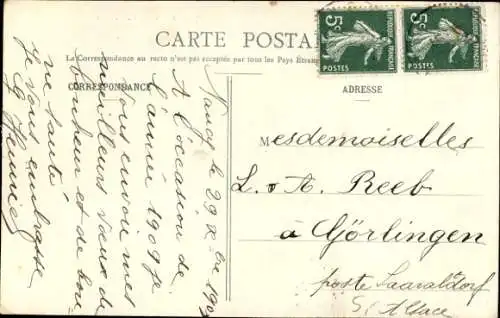 CARTE POSTALE
La Correspondance au recto n'est pas acceptée par tous les Pays Étrangers
CORRESPONDANCE
ADRESSE
5c
RÉPUBLIQUE FRANÇAISE
POSTES
5c
RÉPUBLIQUE FRANÇAISE
POSTES
Nancy le 29 Xbre 190
A l'occasion de
l'année 1909 je
vous envoie mes
meilleurs vœux de
bonheur et de bon
ne santé.
Je vous embrasse
Mesdemoiselles
L. & A. Reeb
à Görlingen
poste Saaraltdorf
Alsace